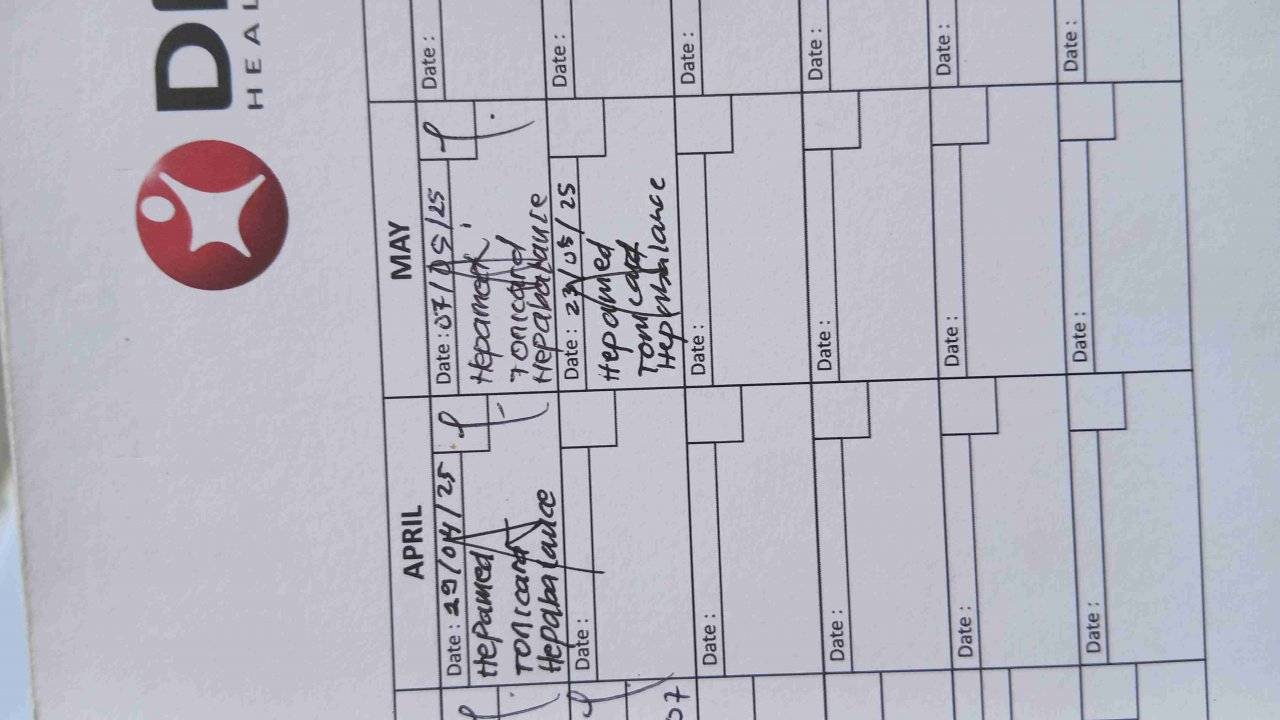 D
HEAL
APRIL
MAY
Date : 29/04/25
Hepamed
Tonicard
Hepabalance
Date : 07/05/25
Hepamerk
Tonicard
Hepabalance
Date :
Date :
Date : 23/05/25
Hepamed
Tonicard
Hepabalance
Date :
07
Date :
Date :
Date :
Date :
Date :
Date :
Date :
Date :
Date :
Date :
Date :
Date :